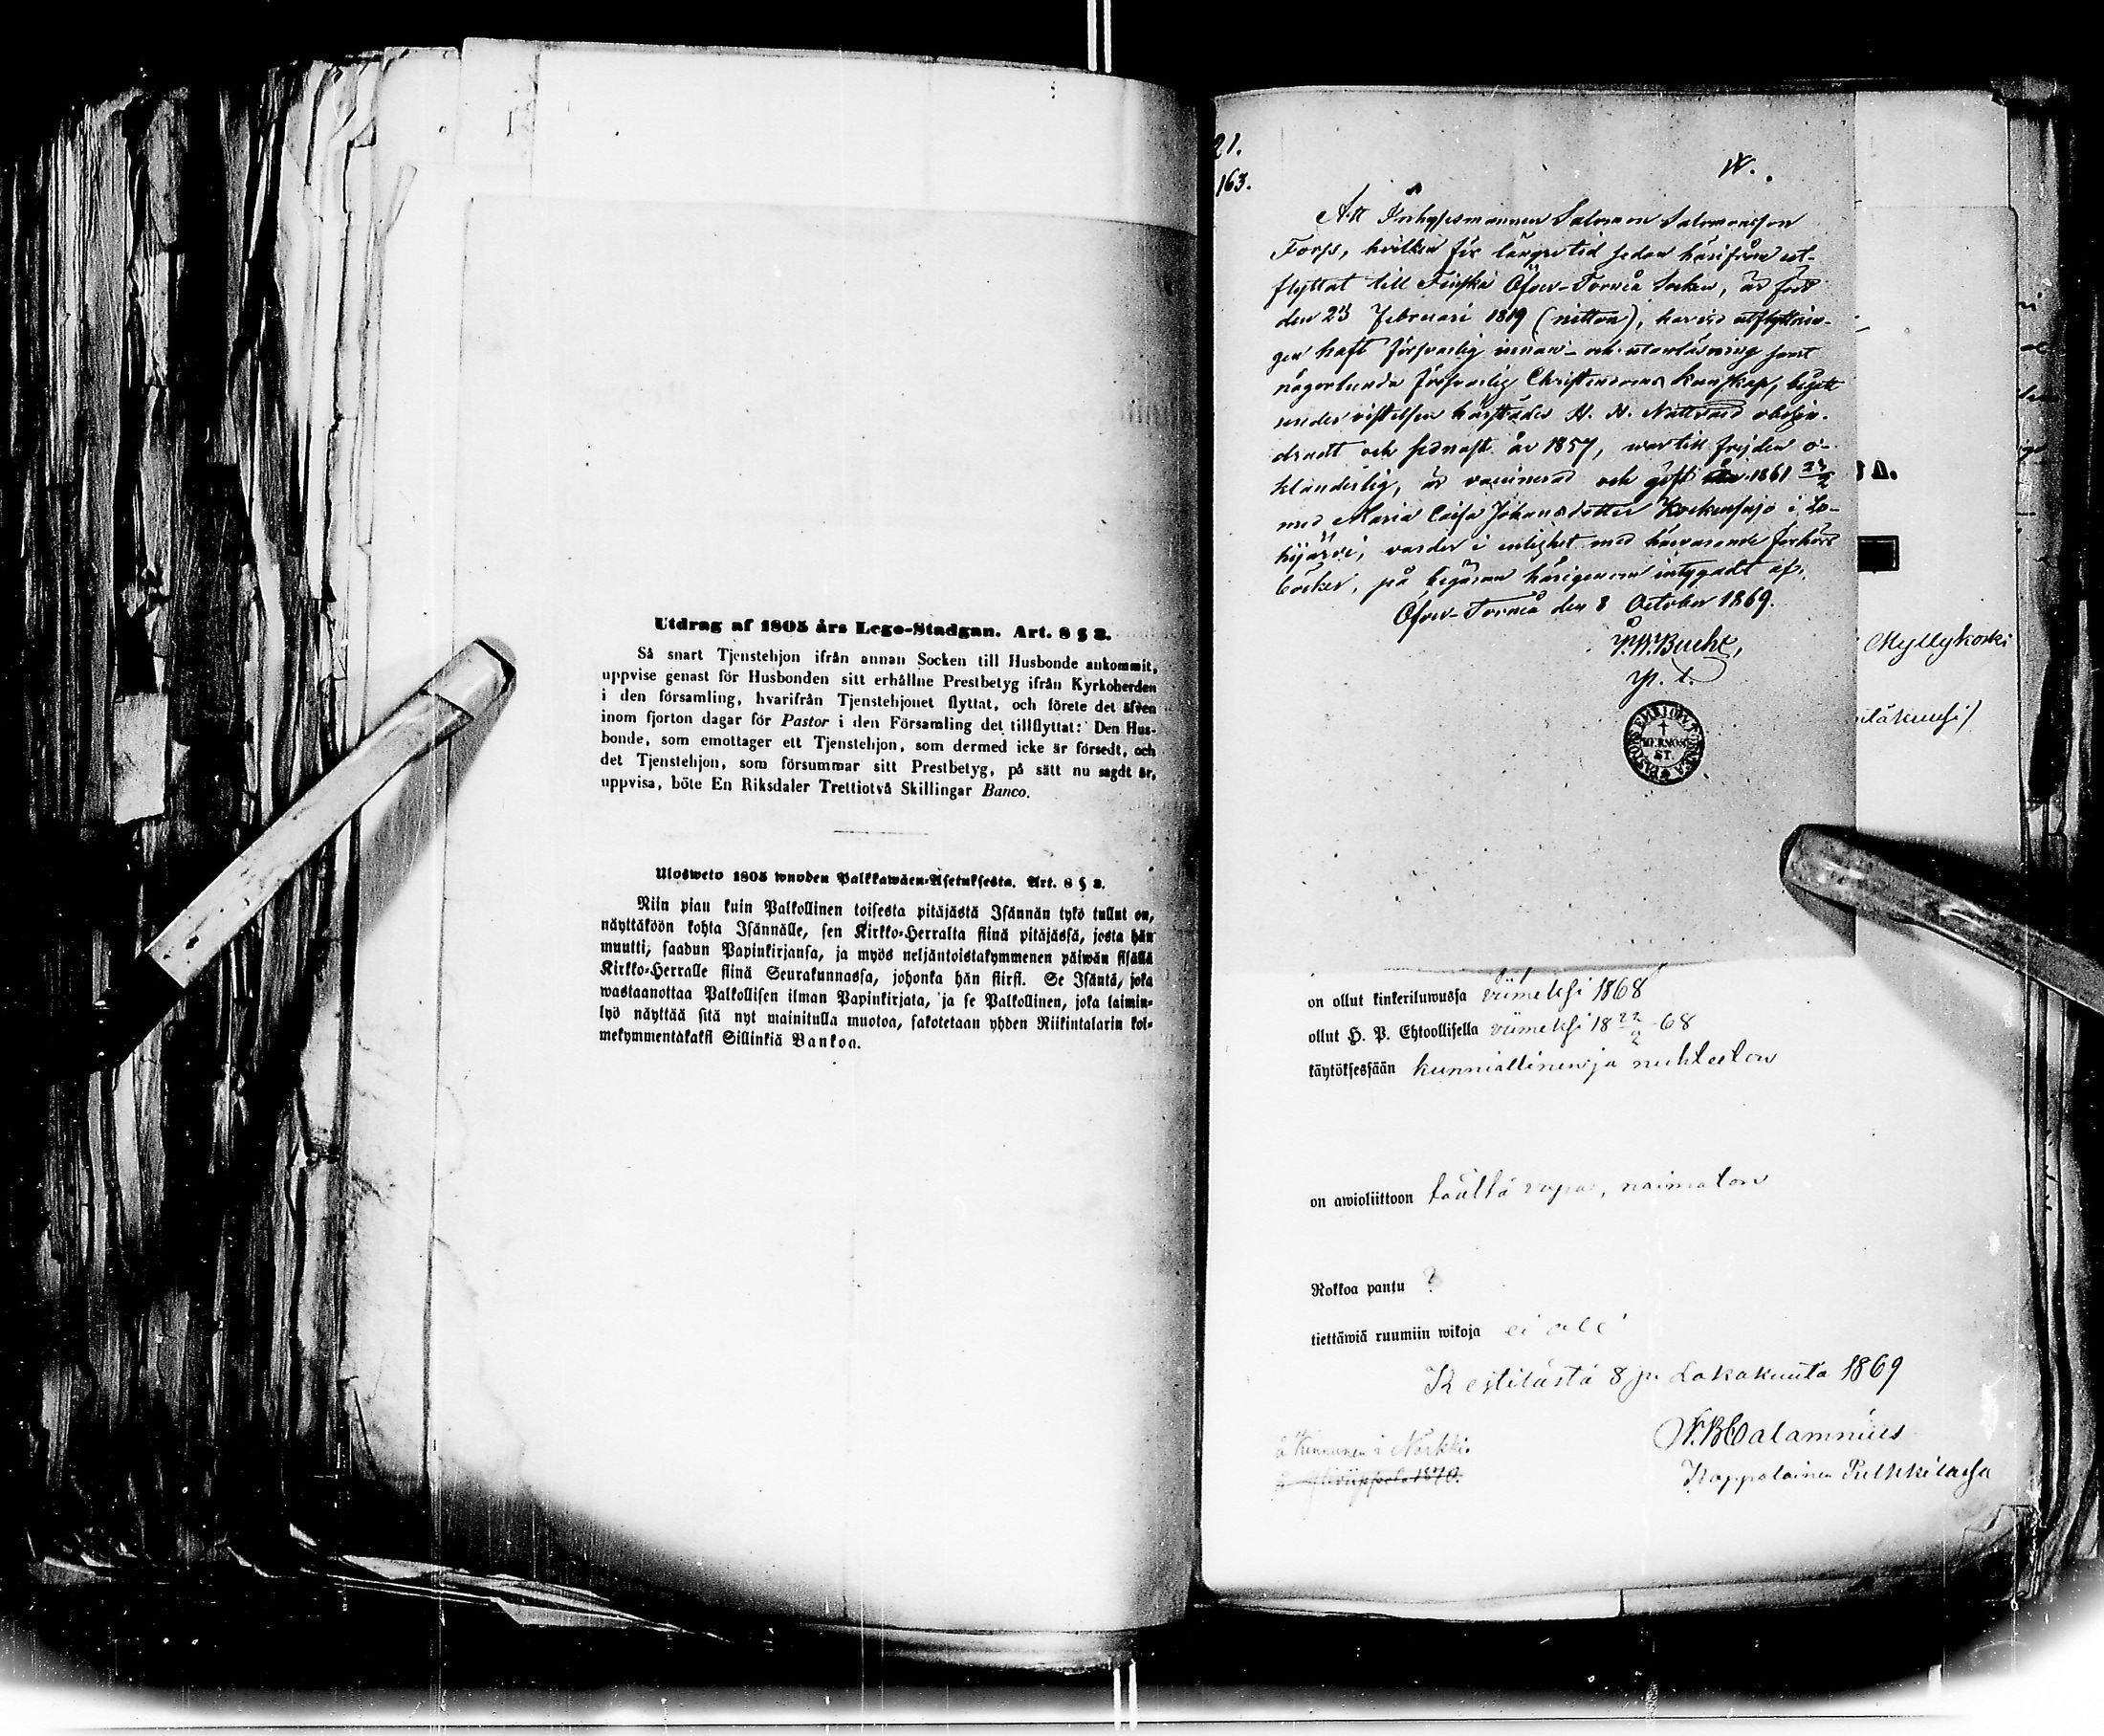 Utdrag af 1805 års Lego-Stadgan. Art. 8 § 3.
Så snart Tjenstehjon ifrån annan Socken till Husbonde ankommit,
uppvise genast för Husbonden sitt erhållne Prestbetyg ifrån Kyrkoherden
i den församling, hvarifrån Tjenstehjonet flyttat, och förete det äfven
inom fjorton dagar för Pastor i den Församling det tillflyttat: Den Hus-
bonde, som emottager ett Tjenstehjon, som dermed icke är försedt, och
det Tjenstehjon, som försummar sitt Prestbetyg, på sätt nu sagdt är,
uppvisa, böte En Riksdaler Trettiotvå Skillingar Banco.
Ulosweto 1805 wuoden Palkkawäen-Asetuksesta. Art. 8 § 3.
Niin pian kuin Palkollinen toisesta pitäjästä Isännän tykö tullut on,
näyttäköön kohta Isännälle, sen Kirkko-Herralta siinä pitäjässä, josta hän
muutti, saadun Papinkirjansa, ja myös neljäntoistakymmenen päiwän sisällä
Kirkko-Herralle siinä Seurakunnassa, johonka hän siirsi. Se Isäntä, joka
wastaanottaa Palkollisen ilman Papinkirjata, ja se Palkollinen, joka laimin-
lyö näyttää sitä nyt mainitulla muotoa, sakotetaan yhden Riikintalarin kol-
mekymmentäkaksi Sillinkiä Bankoa.
21.
163.
Att Inhysesmannen Salomon Salomonsson
Forss, hvilken för längre tid sedan härifrån ut-
flyttat till Finska Öfver-Torneå Socken, är född
den 23 Februari 1819 (nitton), har vid utflyttnin-
gen haft försvarlig innan- och utanläsning samt
någorlunda försvarlig Christendoms kunskap, begått
under vistelsen härstädes H. H. Nattvard obehin-
dradt och sednast år 1857, war till frejden o-
klanderlig, är vaccinerad och gift 1861 24/2
med Maria Caisa Johansdotter i Lo-
hijärvi, varder i enlighet med härvarande förhörs
böcker, på begäran härigenom intygadt af.
Öfver-Torneå den 8 October 1869.
p. t.
Myllykoski
on ollut kinkeriluwussa viimeksi 1868
ollut H. P. Ehtoollisella viimeksi 18 22/2 68
käytöksessään kunniallinen ja nuhteeton
on awioliittoon täältä vapa, naimaton
Rokkoa pantu ?
tiettäwiä ruumiin wikoja ei ole
Kestilästä 8 p. Lokakuuta 1869
Calamnius
Kappalainen Pulkkilassa
1870.